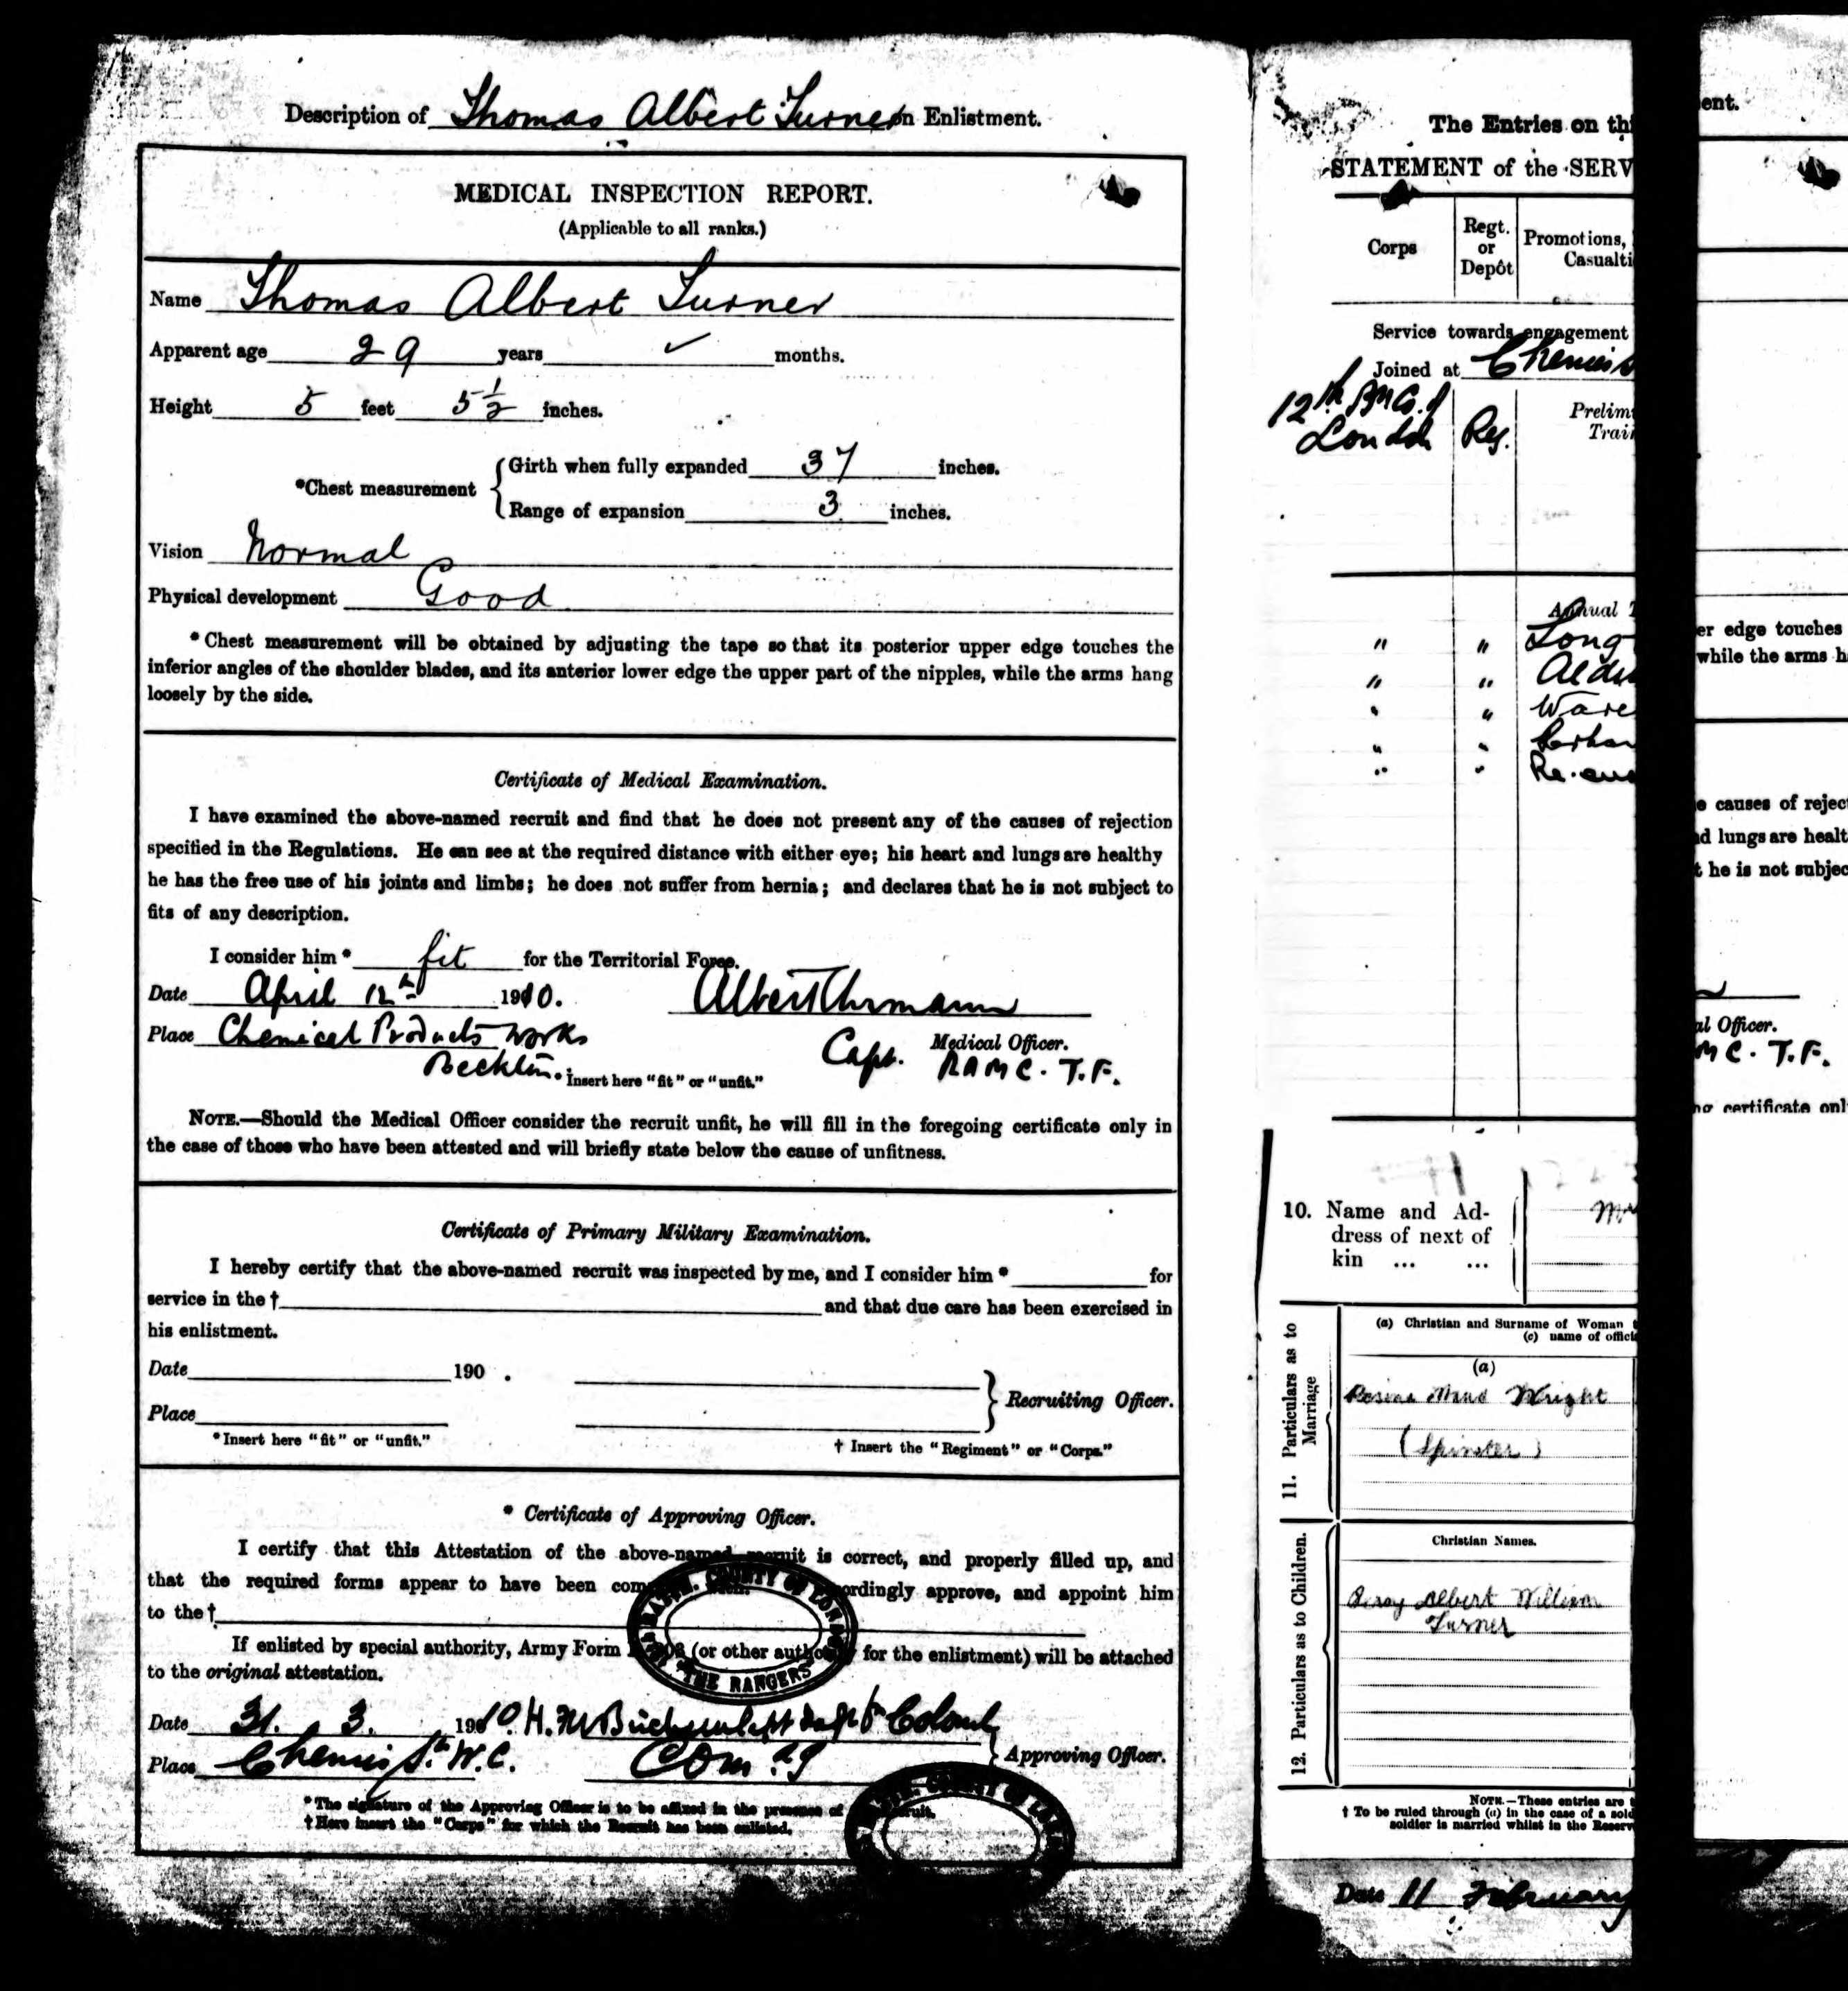 Description of Thomas Albert Turner on Enlistment.
MEDICAL INSPECTION REPORT.
(Applicable to all ranks.)
Name Thomas Albert Turner
Apparent age 29 years ✓ months.
Height 5 feet 5½ inches.
*Chest measurement { Girth when fully expanded 37 inches.
Range of expansion 3 inches.
Vision Normal
Physical development Good
* Chest measurement will be obtained by adjusting the tape so that its posterior upper edge touches the
inferior angles of the shoulder blades, and its anterior lower edge the upper part of the nipples, while the arms hang
loosely by the side.
Certificate of Medical Examination.
I have examined the above-named recruit and find that he does not present any of the causes of rejection
specified in the Regulations. He can see at the required distance with either eye; his heart and lungs are healthy
he has the free use of his joints and limbs; he does not suffer from hernia; and declares that he is not subject to
fits of any description.
I consider him * fit for the Territorial Force.
Date April 12th 1910. Albert
Place Chemical Products Works Medical Officer.
Beckton. Capt. RAMC. T.F.
* Insert here "fit" or "unfit."
NOTE.—Should the Medical Officer consider the recruit unfit, he will fill in the foregoing certificate only in
the case of those who have been attested and will briefly state below the cause of unfitness.
Certificate of Primary Military Examination.
I hereby certify that the above-named recruit was inspected by me, and I consider him * for
service in the † and that due care has been exercised in
his enlistment.
Date 190 .
Place } Recruiting Officer.
* Insert here "fit" or "unfit."
† Insert the "Regiment" or "Corps."
* Certificate of Approving Officer.
I certify that this Attestation of the above-named recruit is correct, and properly filled up, and
that the required forms appear to have been com ordingly approve, and appoint him
to the †
If enlisted by special authority, Army Form (or other authority for the enlistment) will be attached
to the original attestation.
COUNTY OF LONDON
"THE RANGERS"
Date 31. 3. 1910. H. Colonel
Place Chenies St. W.C. Comdg } Approving Officer.
* The signature of the Approving Officer is to be affixed in the presence of recruit.
† Here insert the "Corps" for which the Recruit has been enlisted.
COUNTY OF LONDON
The Entries on thi
STATEMENT of the SERV
Corps
Regt. or Depôt
Promotions,
Casualti
Service towards engagement
Joined at Chenies
12th Bn Co. of
London Reg.
Prelim
Trai
Annual T
" " Long
" " Alde
" " Ware
" "
" " Re-en
10. Name and Ad-
dress of next of
kin ... ...
11. Particulars as to Marriage
(a) Christian and Surname of Woman t
(c) name of offici
(a)
Maud Wright
(Spinster)
12. Particulars as to Children.
Christian Names.
Albert William
Turner
NOTE.—These entries are t
† To be ruled through (a) in the case of a sold
soldier is married whilst in the Reserv
Date 11 February
ent.
er edge touches
while the arms h
e causes of rejec
d lungs are healt
t he is not subjec
al Officer.
MC. T.F.
ng certificate onl